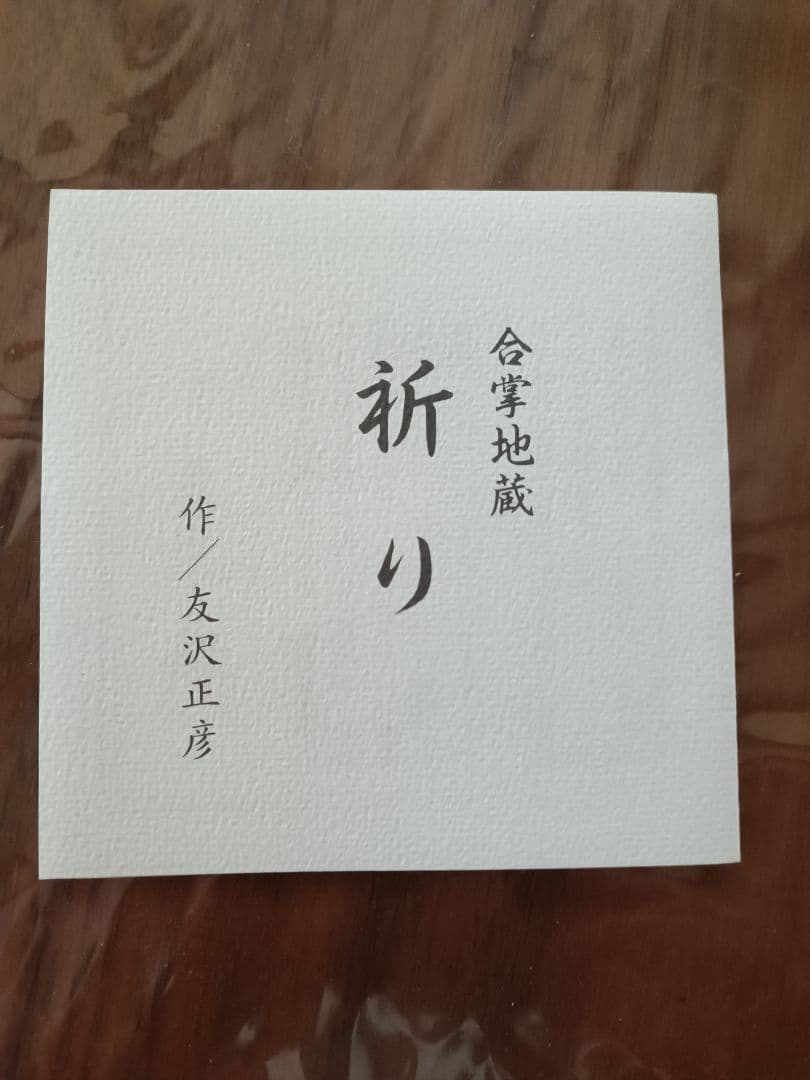 合掌地蔵
祈り
作／友沢正彦